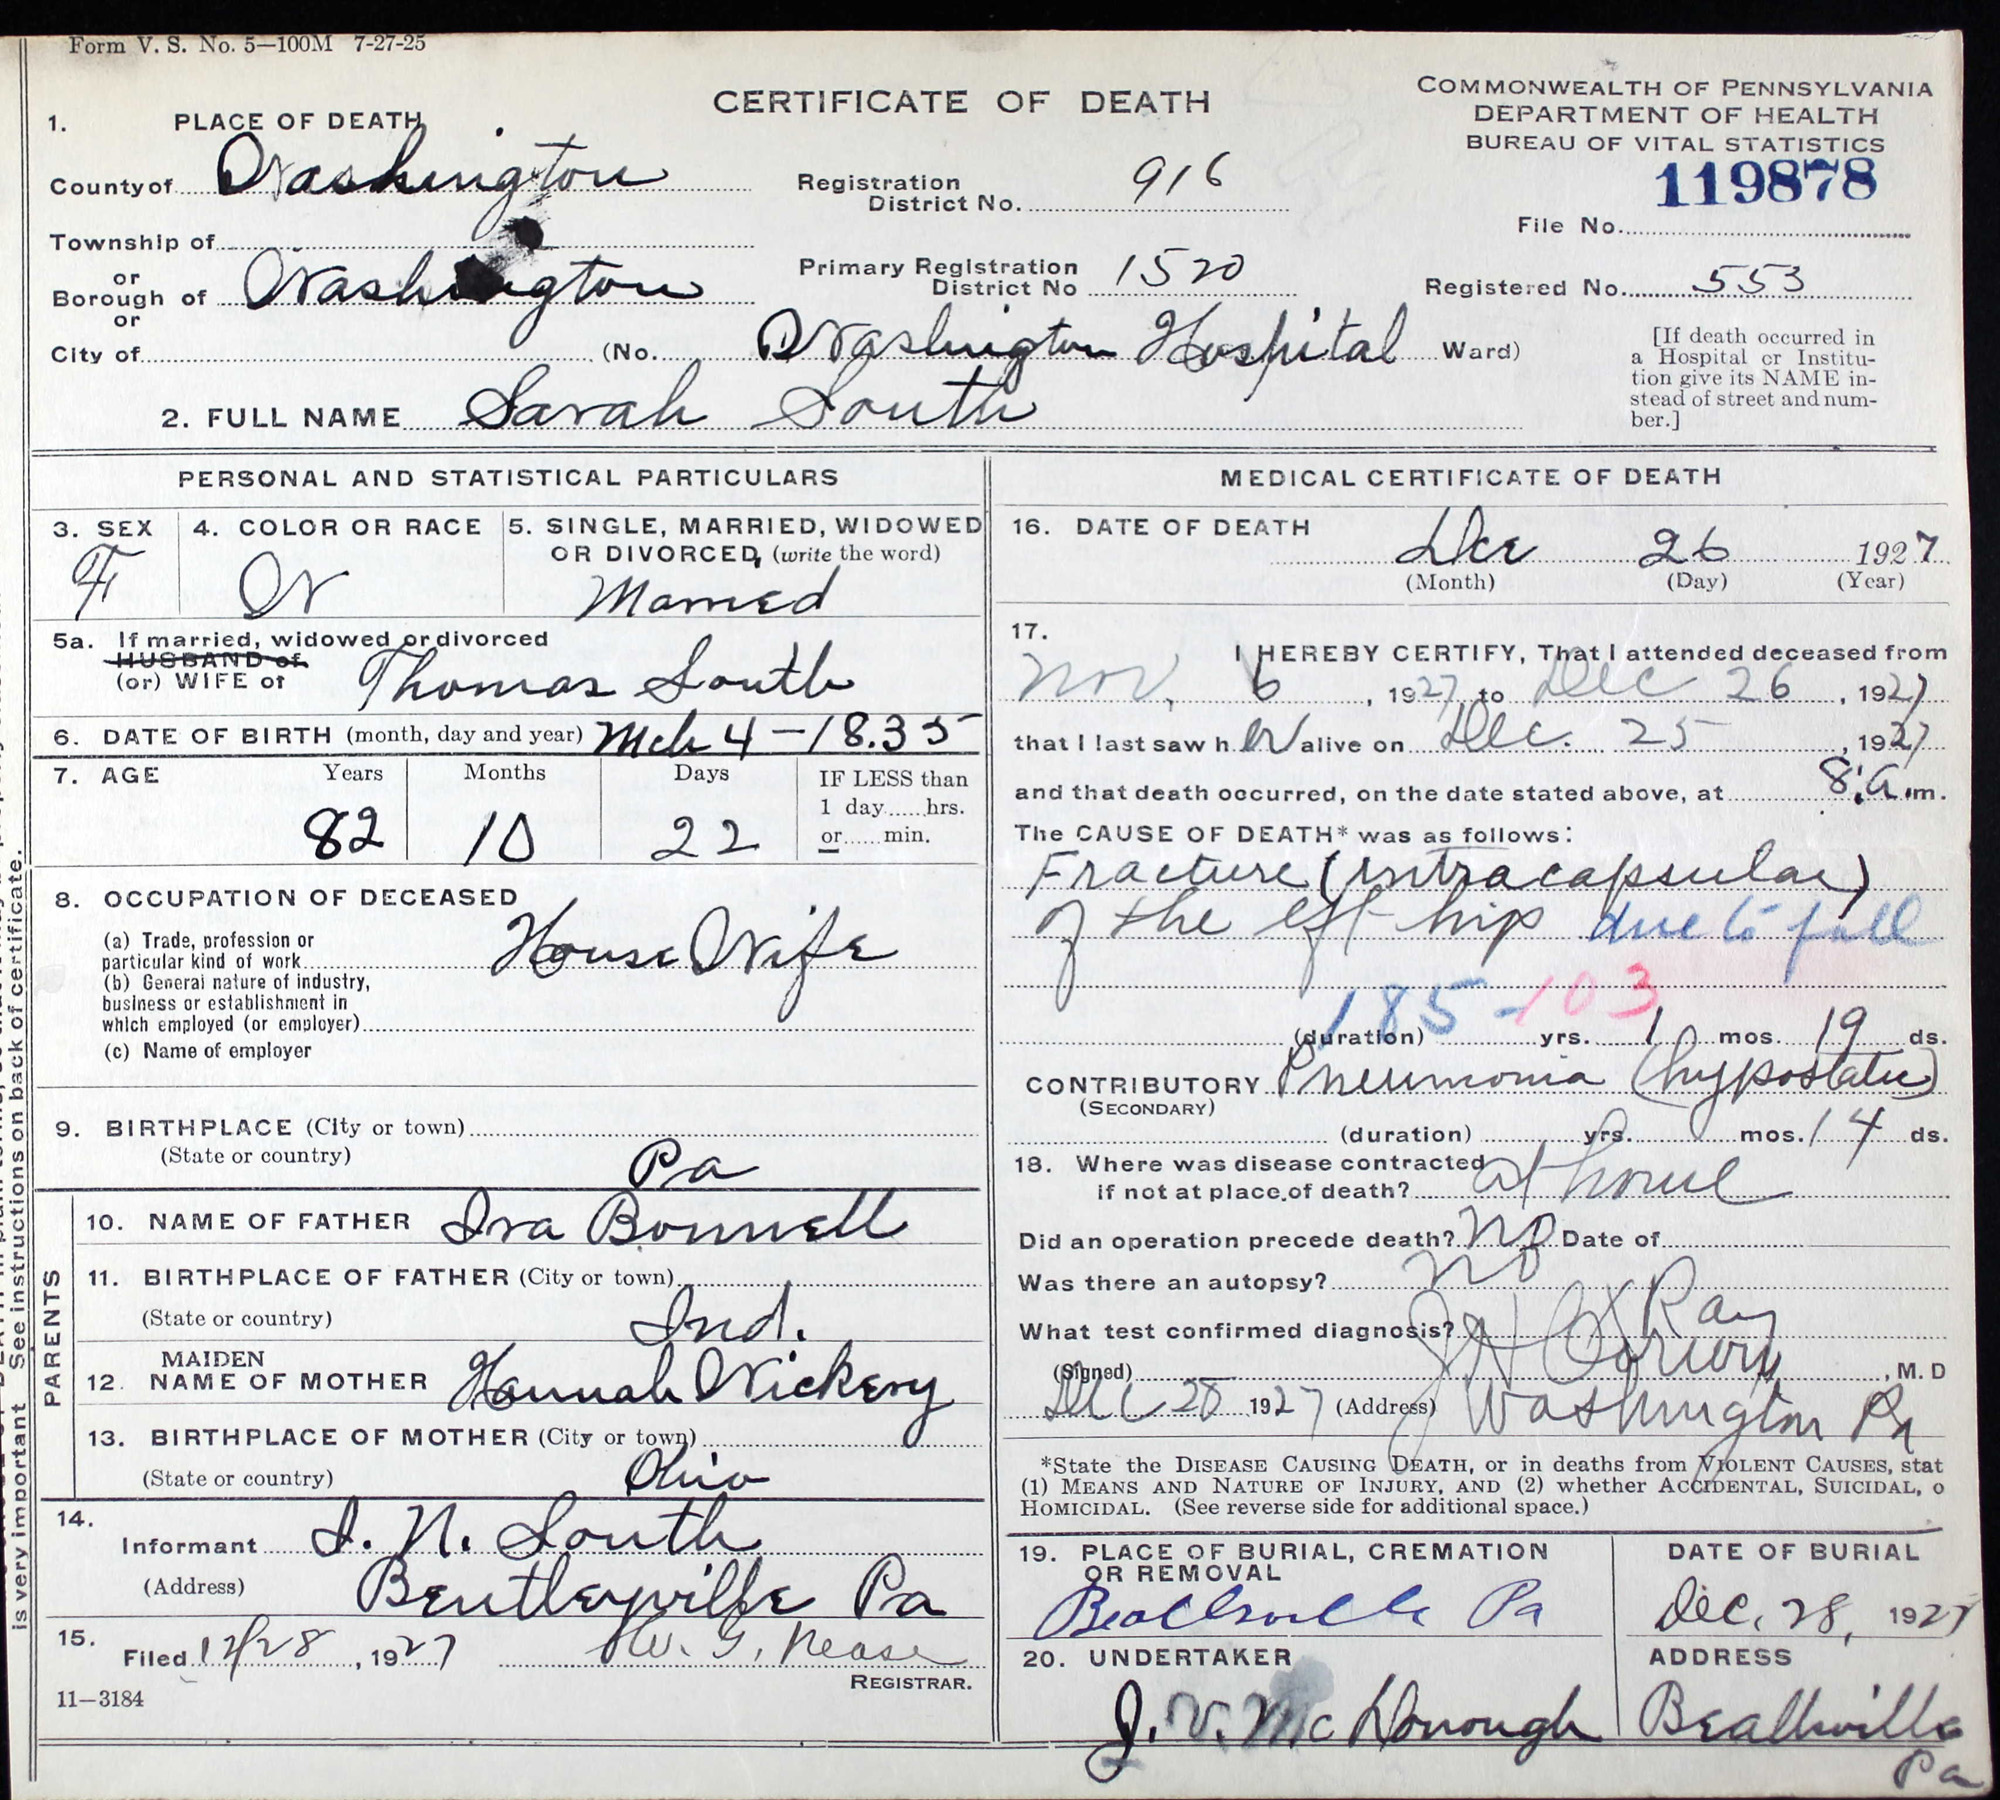 Form V. S. No. 5—100M 7-27-25
CERTIFICATE OF DEATH
COMMONWEALTH OF PENNSYLVANIA
DEPARTMENT OF HEALTH
BUREAU OF VITAL STATISTICS
119878
File No.
Registered No. 553
1. PLACE OF DEATH
County of Washington
Registration District No. 916
Township of
or
Borough of Washington
Primary Registration District No 1520
or
City of (No. Washington Hospital Ward)
[If death occurred in
a Hospital or Institu-
tion give its NAME in-
stead of street and num-
ber.]
2. FULL NAME Sarah South
PERSONAL AND STATISTICAL PARTICULARS
3. SEX
F
4. COLOR OR RACE
W
5. SINGLE, MARRIED, WIDOWED
OR DIVORCED, (write the word)
Married
5a. If married, widowed or divorced
HUSBAND of
(or) WIFE of Thomas South
6. DATE OF BIRTH (month, day and year) Mch 4 - 1835
7. AGE Years Months Days
82 10 22
IF LESS than
1 day.....hrs.
or......min.
8. OCCUPATION OF DECEASED
(a) Trade, profession or
particular kind of work House Wife
(b) General nature of industry,
business or establishment in
which employed (or employer)
(c) Name of employer
9. BIRTHPLACE (City or town)
(State or country) Pa
PARENTS
10. NAME OF FATHER Ira Bonnell
11. BIRTHPLACE OF FATHER (City or town)
(State or country) Ind.
12. MAIDEN
NAME OF MOTHER Hannah Vickery
13. BIRTHPLACE OF MOTHER (City or town)
(State or country) Ohio
14.
Informant I. N. South
(Address) Bentleyville Pa
15.
Filed 12/28, 1927 W. G. Nease
REGISTRAR.
11—3184
MEDICAL CERTIFICATE OF DEATH
16. DATE OF DEATH Dec 26 1927
(Month) (Day) (Year)
17.
I HEREBY CERTIFY, That I attended deceased from
Nov, 6, 1927 to Dec 26, 1927
that I last saw her alive on Dec. 25, 1927
and that death occurred, on the date stated above, at 8:a.m.
The CAUSE OF DEATH* was as follows:
Fracture (intracapsular)
of the left hip due to fall
185 - 103
(duration) yrs. 1 mos. 19 ds.
CONTRIBUTORY Pneumonia (hypostatic)
(SECONDARY)
(duration) yrs. mos. 14 ds.
18. Where was disease contracted
if not at place of death? at home
Did an operation precede death? No Date of
Was there an autopsy? No
What test confirmed diagnosis? X Ray
(Signed) , M. D
Dec 28 1927 (Address) Washington Pa
*State the DISEASE CAUSING DEATH, or in deaths from VIOLENT CAUSES, stat
(1) MEANS AND NATURE OF INJURY, AND (2) whether ACCIDENTAL, SUICIDAL, o
HOMICIDAL. (See reverse side for additional space.)
19. PLACE OF BURIAL, CREMATION
OR REMOVAL
Beallsville Pa
DATE OF BURIAL
Dec. 28, 1927
20. UNDERTAKER
J. V. McDonough
ADDRESS
Beallsville
Pa
is very important See instructions on back of certificate.